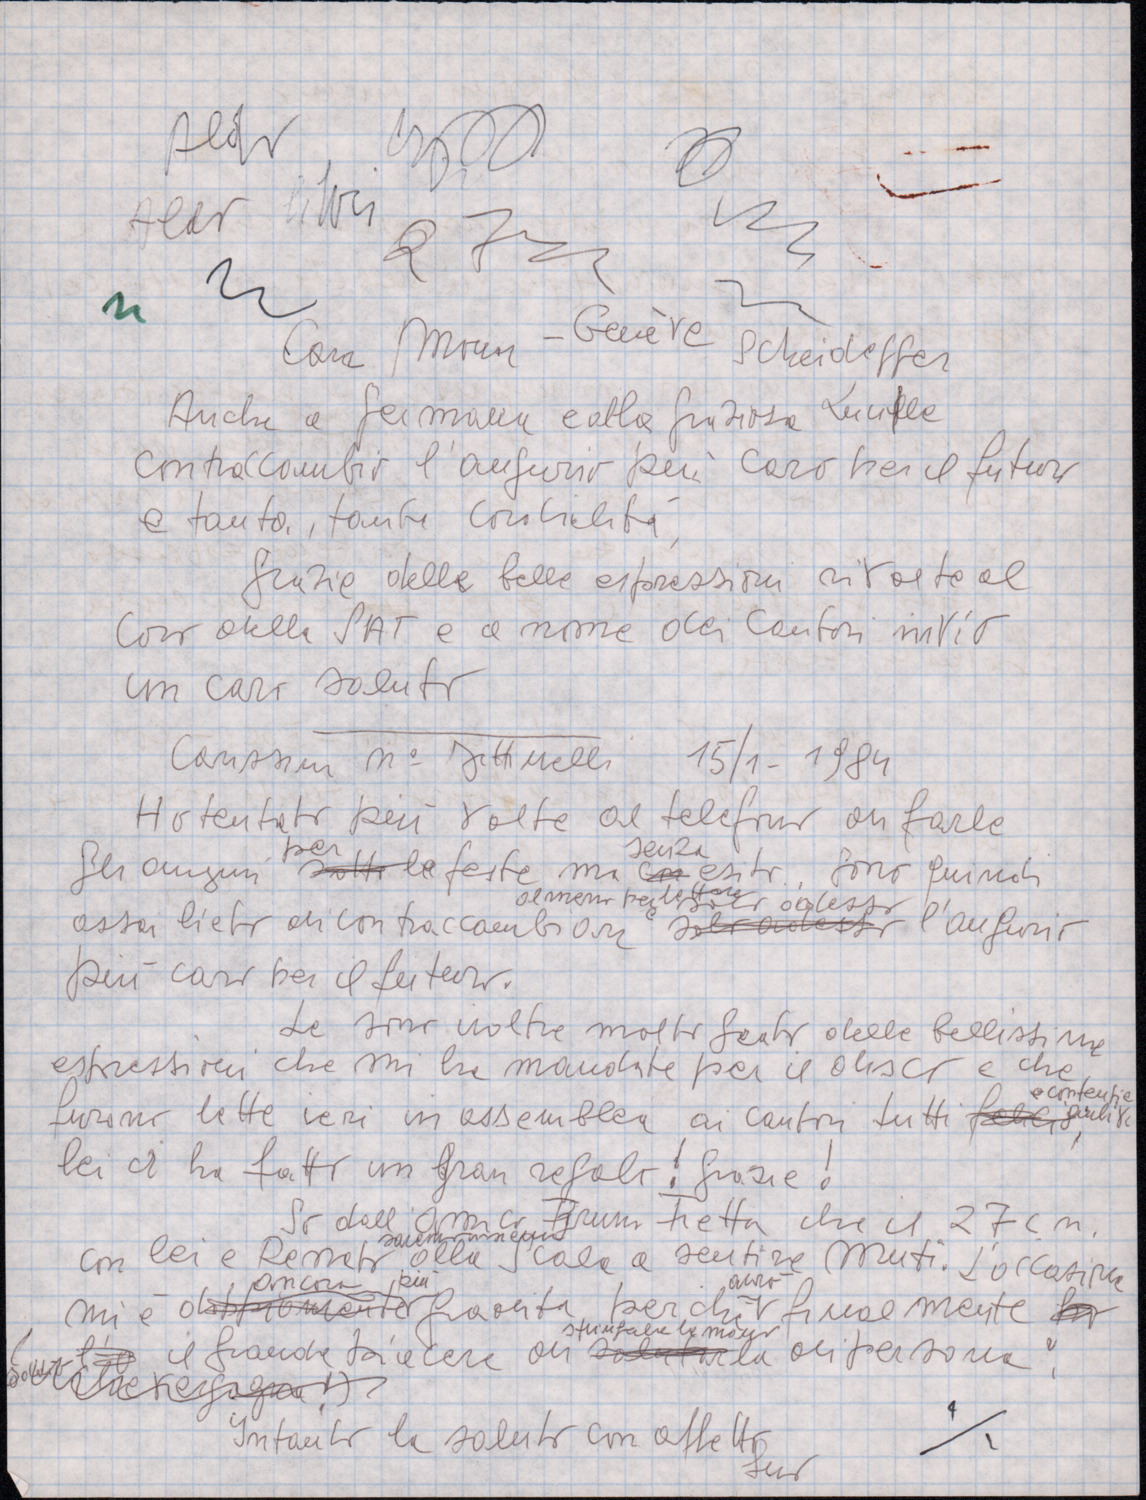 Aldo
Aldo
27
Cara Moun - Genève Scheidegger
Anche a Germana e alla graziosa Lucille
contraccambio l'augurio più caro per il futuro
e tanta, tanta cordialità,
Grazie delle belle espressioni rivolte al
Coro della SAT e a nome dei Cantori invio
un caro saluto
Carissima Mª Vettinelli 15/1 - 1984
Ho tentato più volte al telefono di farle
per senza
gli auguri sotto le feste ma con esito, sono quindi
almeno per lettera solo adesso
assai lieto di contraccambiare solo adesso l'augurio
più caro per il futuro.
Le sono inoltre molto grato delle bellissime
espressioni che mi ha mandate per il disco e che
e contenti e giulivi
furono lette ieri in assemblea ai cantori tutti felici,
lei ci ha fatto un gran regalo! Grazie!
So dall'amico Bruno Fietta che il 27 c.m.
con lei e Renato alla Scala a sentire Muti. L'occasione
ancora più avrò
mi è doppiamente gradita, perché finalmente
stringerle la mano
il grande piacere di salutarla di persona
(Che vergogna!)
Intanto la saluto con affetto
suo